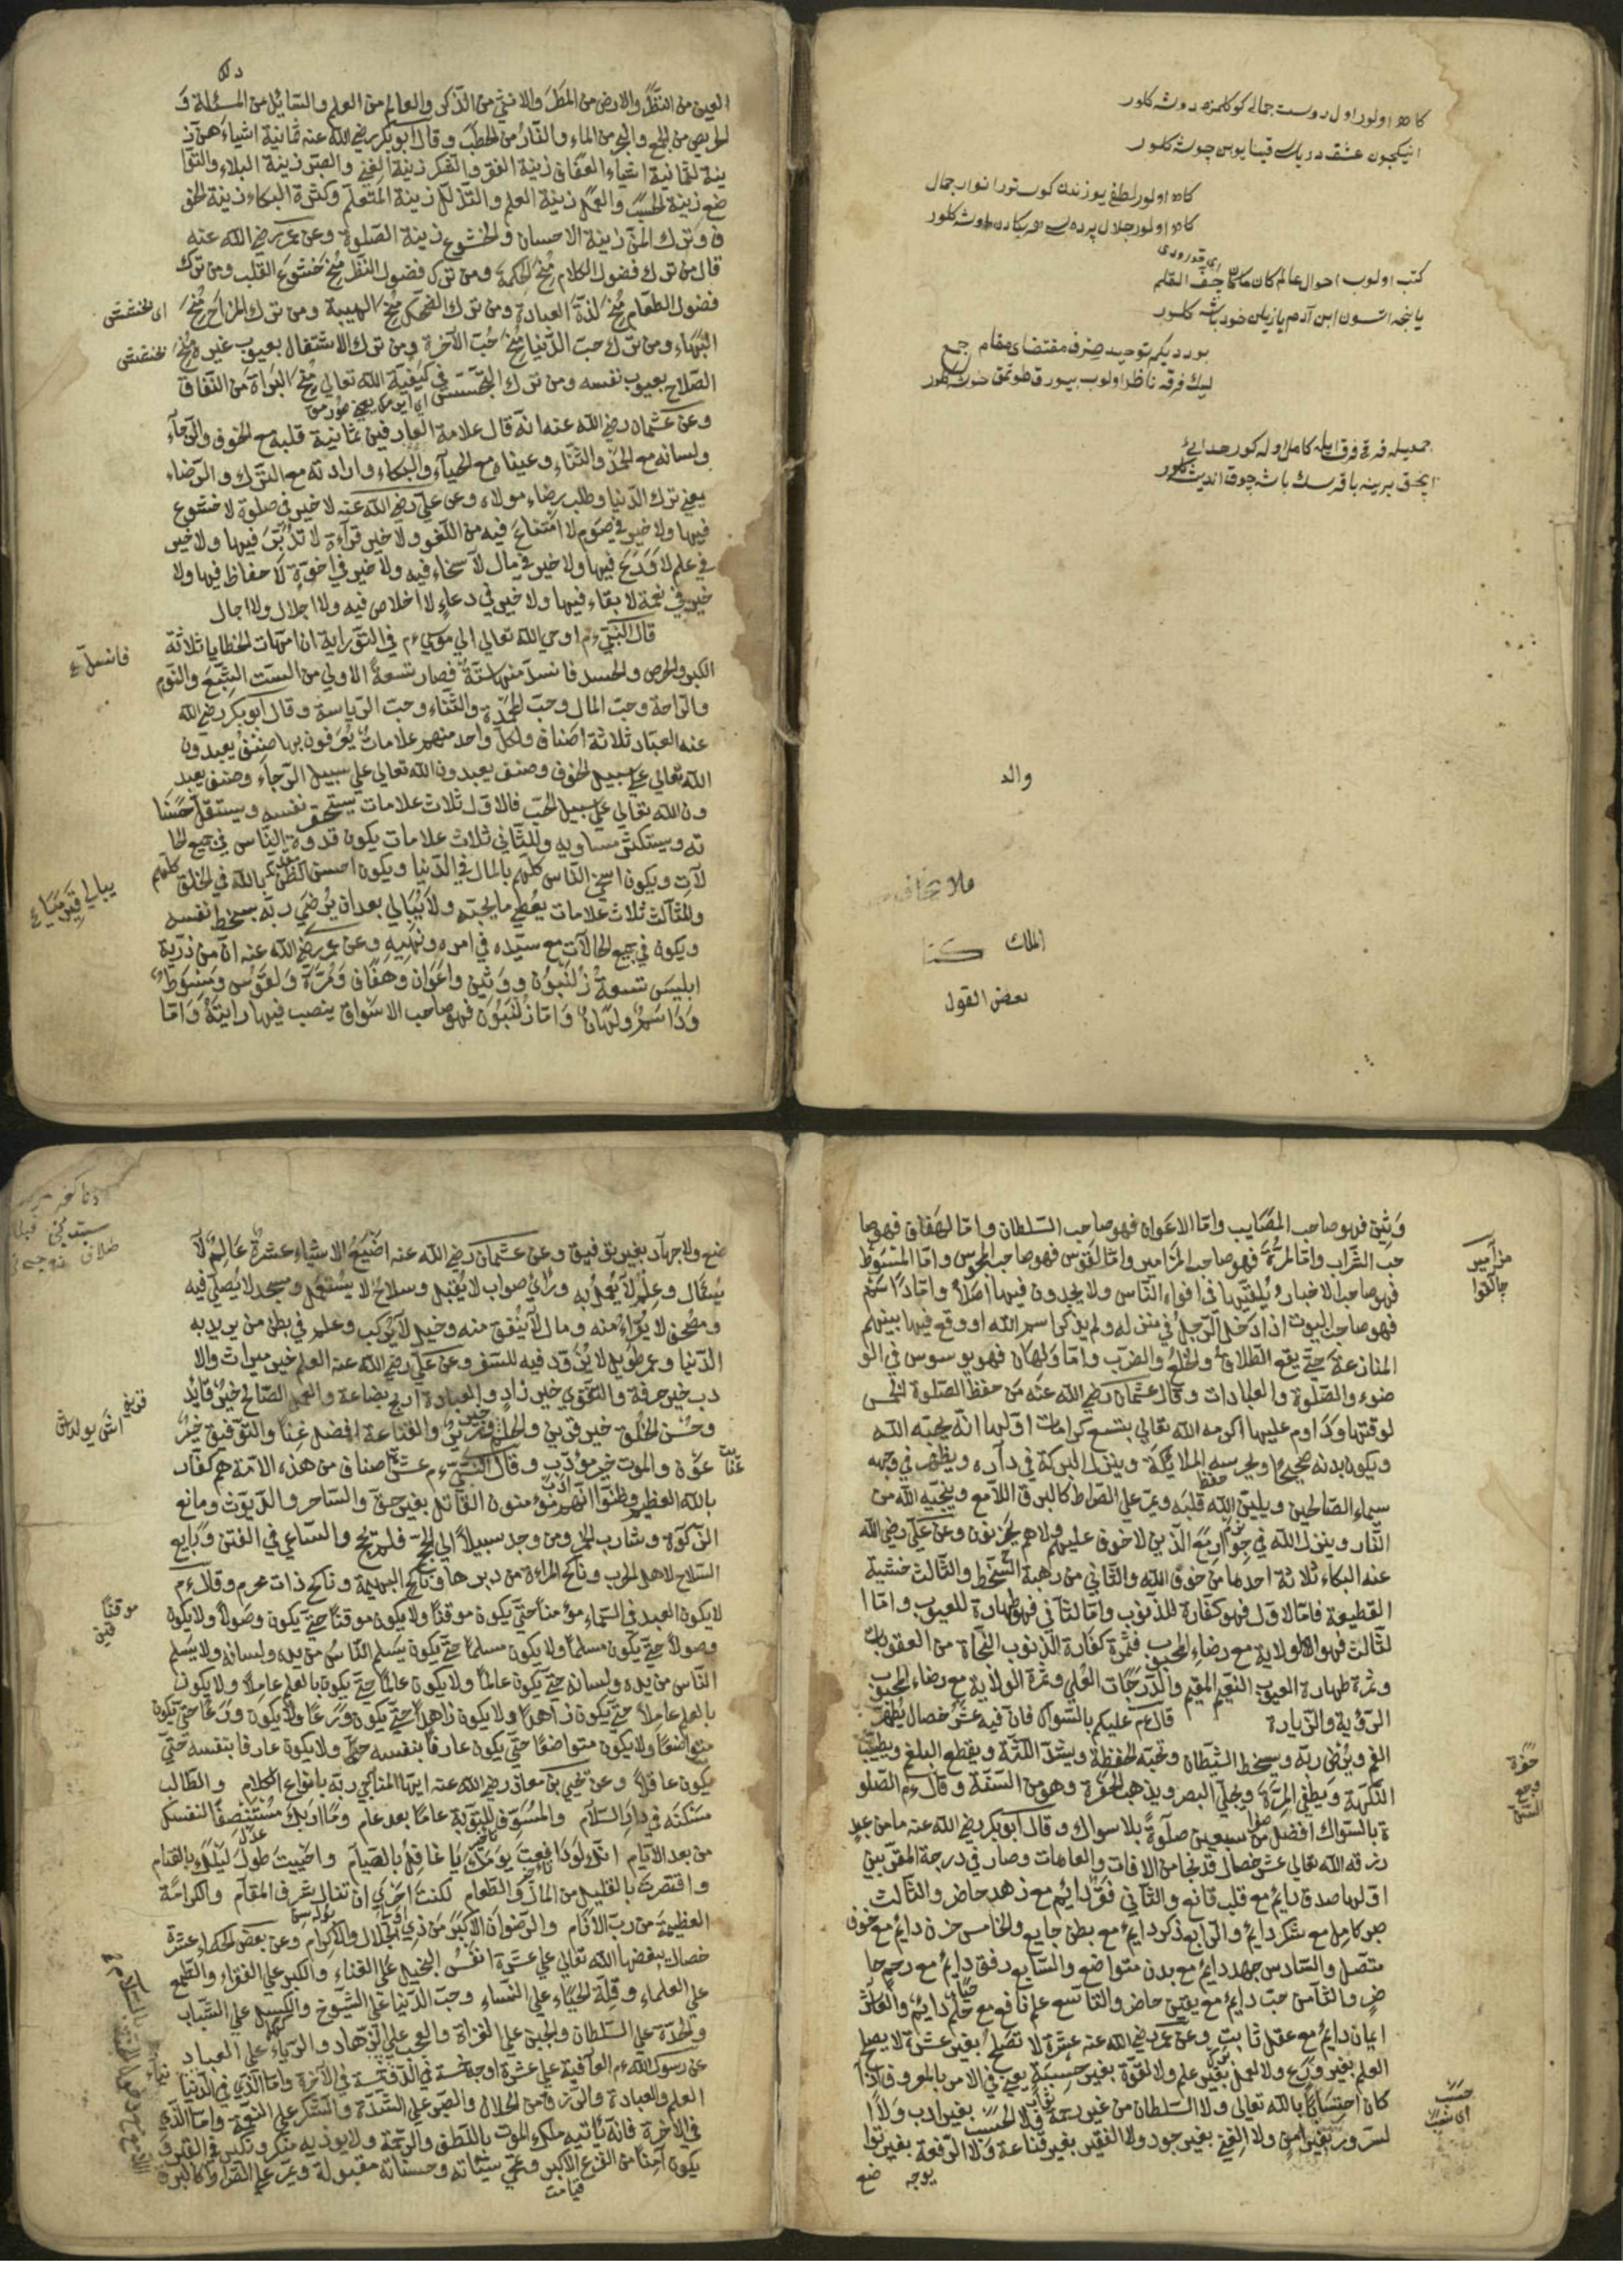 كاه اولور اول دوست جمالى كوكلمزه دوشه كلور
ايچون عشق درياسى قينايوبن جوشه كلور
كاه اولور لطفى يوزندن كوستورر انوار جمال
كاه اولور جلال پرده سى
كتب اولوب احوال عالم كان ماكان جف القلم
يازيلان خود باشه كلور
بو درديكم توحيد صرف مقتضاى مقام جمع
ليك فرقه ناظر اولوب
جمعيله فرقى فرق ايله كامل اوله كور هدايى
والد
ملا
الملك
بعض القول
العين من النظر والارض من المطر والانثى من الذكر والعالم من العلم والسائل من المسئلة و
لحريص من الجمع والبحر من الماء والنار من الحطب وقال ابو بكر رضي الله عنه ثمانية اشياء هن ز
ينة لثمانية اشياء العفاف زينة الفقر والشكر زينة الغني والصبر زينة البلاء والتوا
ضع زينة الحسب والحلم زينة العلم والتذلل زينة المتعلم وكثرة البكاء زينة الخو
ف وترك المن زينة الاحسان والخشوع زينة الصلوة وعن عمر رضي الله عنه
قال من ترك فضول الكلام منح الحكمة ومن ترك فضول النظر منح خشوع القلب ومن ترك
فضول الطعام منح لذة العبادة ومن ترك الضحك منح الهيبة ومن ترك المزاح منح
البهاء ومن ترك حب الدنيا منح حب الآخرة ومن ترك الاشتغال بعيوب غيره منح
الصلاح بعيوب نفسه ومن ترك التجسس في كيفية الله تعالى منح البراة من النفاق
وعن عثمان رضي الله عنه انه قال علامة العارفين ثمانية قلبه مع الخوف والرجآء
ولسانه مع الحمد والثناء وعيناه مع الحيآء والبكاء وارادته مع الترك والرضاء
يعني ترك الدنيا وطلب رضاء مولاه وعن علي رضي الله عنه لا خير في صلوة لا خشوع
فيها ولا خير في صوم لا امتناع فيه من اللغو ولا خير قرآءة لا تدبر فيها ولا خير
في علم لا ورع فيها ولا خير في مال لا سخاء فيه ولا خير في اخوة لا حفاظ فيها ولا
خير في نعمة لا بقاء فيها ولا خير في دعاء لا اخلاص فيه ولا اجلال ولا اجال
قال النبي ءم اوحي الله تعالى الي موسي ءم في التوراية ان امهات الخطايا ثلاثة
الكبر والحرص والحسد فانسد منها ستة فصار تسعة الاولي من الست الشبع والنوم
والراحة وحب المال وحب المحمدة والثناء وحب الرياسة وقال ابو بكر رضي الله
عنه العباد ثلاثة اصناف ولكل واحد منهم علامات يعرفون بها صنف يعبدون
الله تعالى علي سبيل الخوف وصنف يعبدون الله تعالى علي سبيل الرجاء وصنف يعبد
ون الله تعالى علي سبيل الحب فالاول ثلاث علامات يستحقر نفسه ويستقل حسنا
ته ويستكثر مساويه وللثاني ثلاث علامات يكون قدوة الناس في جميع الحا
لآت ويكون اسخي الناس كلهم بالمال في الدنيا ويكون احسن الظن بالله في الخلق كلهم
وللثالث ثلاث علامات يعطي ما يحبه ولا يبالي بعد ان يرضي ربه بسخط نفسه
ويكون في جميع الحالآت مع سيده في امره ونهيه وعن عمر رضي الله عنه ان من ذرية
ابليس تسعة زلنبون ووثين واعوان وهفاف ومرة ولقوس ومسوط
وداسم وولهان واما زلنبون فهو صاحب الاسواق ينصب فيها رايته واما
وثين فهو صاحب المصايب واما الاعوان فهو صاحب السلطان واما الهفاف فهو صا
حب الشراب واما المرة فهو صاحب المزامير واما لقوس فهو صاحب المجوس واما المسوط
فهو صاحب الاخبار يلقيها في افواه الناس ولا يجدون فيها اصلا واما داسم
فهو صاحب البيوت اذا دخل الرجل في منزله ولم يذكر اسم الله اووقع فيما بينهم
المنازعة حتي يقع الطلاق والخلع والضرب واما ولهان فهو يوسوس في الو
ضوء والصلوة والعبادات وقال عثمان رضي الله عنه من حفظ الصلوة الخمس
لوقتها وداوم عليها اكرمه الله تعالى بتسع كرامات اولها انه يحبه الله
ويكون بدنه صحيحا ويحرسه الملايكة وينزل البركة في داره ويظهر في وجهه
سيماء الصالحين ويلين الله قلبه ويمر علي الصراط كالبرق اللامع وينجيه الله من
النار وينزل الله في جوار مع الذين لا خوف عليهم ولا هم يحزنون وعن علي رضي الله
عنه البكاء ثلاثة احدها من خوف الله والثاني من رهبة السخط والثالث خشية
القطيعة فاما الاول فهو كفارة للذنوب واما الثاني فهو طهارة للعيوب واما ا
لثالث فهو الولاية مع رضاء المحبوب فثمرة كفارة الذنوب النجاة من العقوبات
وثمرة طهارة العيوب النعيم المقيم والدرجات العلي وثمرة الولاية مع رضاء المحبوب
الرؤية والزيارة قال ءم عليكم بالسواك فان فيه عشر خصال يطهر
الفم ويرضي ربه ويسخط الشيطان وتحبه الحفظة ويشد اللثة ويقطع البلغم ويطيب
النكهة ويطفي المرة ويجلي البصر ويذهب الحفرة وهو من السنة وقال ءم الصلو
ة بالسواك افضل من سبعين صلوة بلا سواك وقال ابو بكر رضي الله عنه ما من عبد
رزقه الله تعالى عشر خصال قد نجا من الافات والعاهات وصار في درجة المقربين
اولها صدق دايم مع قلب قانع والثاني فقر دايم مع زهد حاضر والثالث
صبر كامل مع شكر دايم والرابع ذكر دايم مع بطن جايع والخامس حزن دايم مع خوف
متصل والسادس جهد دايم مع بدن متواضع والسابع رفق دايم مع رحم حا
ضر والثامن حب دايم مع يقين حاضر والتاسع علم نافع مع حلم دايم والعاشر
ايمان دايم مع عقل ثابت وعن عمر رضي الله عنه عشرة لا تصلح بغير عشرة لا يصلح
العلم بغير ورع ولا العمل بغير علم ولا القوة بغير حسبة
كان احتسابا بالله تعالى ولا السلطان من غير ولا الحسب بغير ادب ولا ا
لسرور بغير امن ولا الغني بغير جود ولا الفقير بغير قناعة ولا الرفعة بغير توا
ضع
ضع ولا جهاد بغير توفيق وعن عثمان رضي الله عنه اضيع الاشياء عشرة عالم لا
يسئال وعلم لا يعمل به ورأي صواب لا يقبل وسلاح لا يستعمل ومسجد لا يصلي فيه
ومصحف لا يقراء منه ومال لا ينفق منه وخيل لا يركب وعلم في بطن من يريد به
الدنيا وعمر طويل لا يتزود فيه للسفر وعن علي رضي الله عنه العلم خير ميراث والا
دب خير حرفة والتقوي خير زاد والعبادة اربح بضاعة والعمل الصالح خير قايد
وحسن الخلق خير قرين والحلم خير وزير والقناعة افضل غنا والتوفيق خير
عون والموت خير مؤدب وقال النبي ءم عشر اصناف من هذه الامة هم كفار
بالله العظيم وظنوا انهم مؤمنون القاتل بغير حق والساحر والديوث ومانع
الزكوة وشارب الخمر ومن وجد سبيلا الي الحج فلم يحج والساعي في الفتن وبايع
السلاح لاهل الحرب وناكح المراءة من دبرها وناكح البهيمة وناكح ذات محرم وقال ءم
لا يكون العبد في السماء مؤمنا حتي يكون موقنا ولا يكون موقنا حتي يكون وصولا ولا يكون
وصولا حتي يكون مسلما ولا يكون مسلما حتي يكون يسلم الناس من يده ولسانه ولا يسلم
الناس من يده ولسانه حتي يكون عالما ولا يكون عالما حتي يكون بالعلم عاملا ولا يكون
بالعلم عاملا حتي يكون زاهدا ولا يكون زاهدا حتي يكون ورعا ولا يكون ورعا حتي يكون
متواضعا ولا يكون متواضعا حتي يكون عارفا بنفسه ولا يكون عارفا بنفسه حتي
يكون عاقلا وعن يحيي بن معاذ رضي الله عنه ايها المناجي ربه بانواع الكلام والطالب
مسكنه في دار السلام والمسوف للتوبة عاما بعد عام وما اراك منصفا لنفسك
من بعد الآيام انك لو دافعت يومك يا غافل بالصيام واحييت طول ليلك بالقيام
واقتصرت بالقليل من المآء والطعام لكنت احري ان تنال شرف المقام والكرامة
العظيمة من رب الآنام والرضوان الاكبر من ذي الجلال والاكرام وعن بعض الحكماء عشرة
خصال يبغضها الله تعالى علي عشرة انفس البخيل علي الغناء والكبر علي الفقراء والطمع
علي العلماء وقلة الحياء علي النساء وحب الدنيا علي الشيوخ والكسل علي الشباب
والحدة علي السلطان والجبن علي الغزاة والعجب علي الزهاد والرياء علي العباد
عن رسول الله ءم العآفية علي عشرة اوجه خمسة في الدنيا وخمسة في الآخرة واما الذي في الدنيا
العلم والعبادة والرزق من الحلال والصبر علي الشدة والشكر علي النعمة واما الذي
في الاخرة فانه يأتيه ملك الموت باللطف والرحمة ولا يوذيه منكر ونكير في القبر و
يكون آمنا من الفزع الاكبر ومحي سيئاته وحسناته مقبولة ويمر علي الصراط كالبرق